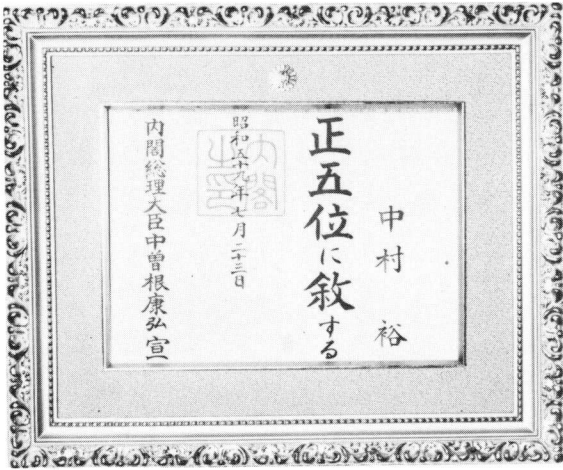 中村 裕
正五位に敘する
昭和五十九年七月二十三日
内閣之印
内閣総理大臣中曽根康弘 宣